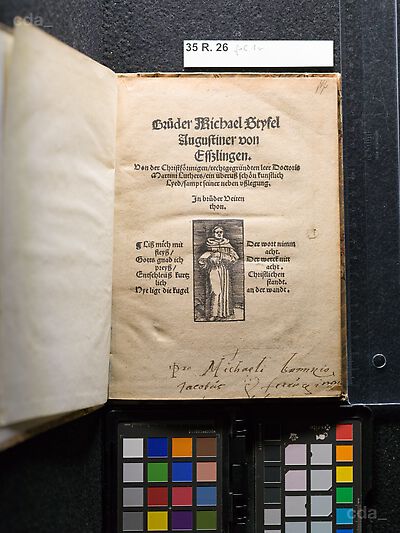 cda_
35 R. 26
Brůder Michael Styfel
Augustiner von
Esszlingen.
Von der Christförmigen/rechtgegründten leer Doctoris
Martini Luthers/ein überuß schön kunstlich
Lyed/sampt seiner neben vßlegung.
In brůder Veiten
thon.
¶ Liß mich mit
fleyß/
Gotts gnad ich
preyß/
Entschleüß kurtz
lich
Hye ligt die kugel
Der wort nimm
acht.
Der werck nitt
acht.
Christlichen
standt.
an der wandt.
Pro Michaeli
Jacobus
cda_